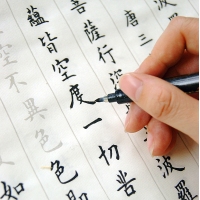 波
唐三
菩薩行深波羅
蘊皆空度一切苦
空不異色色即
如